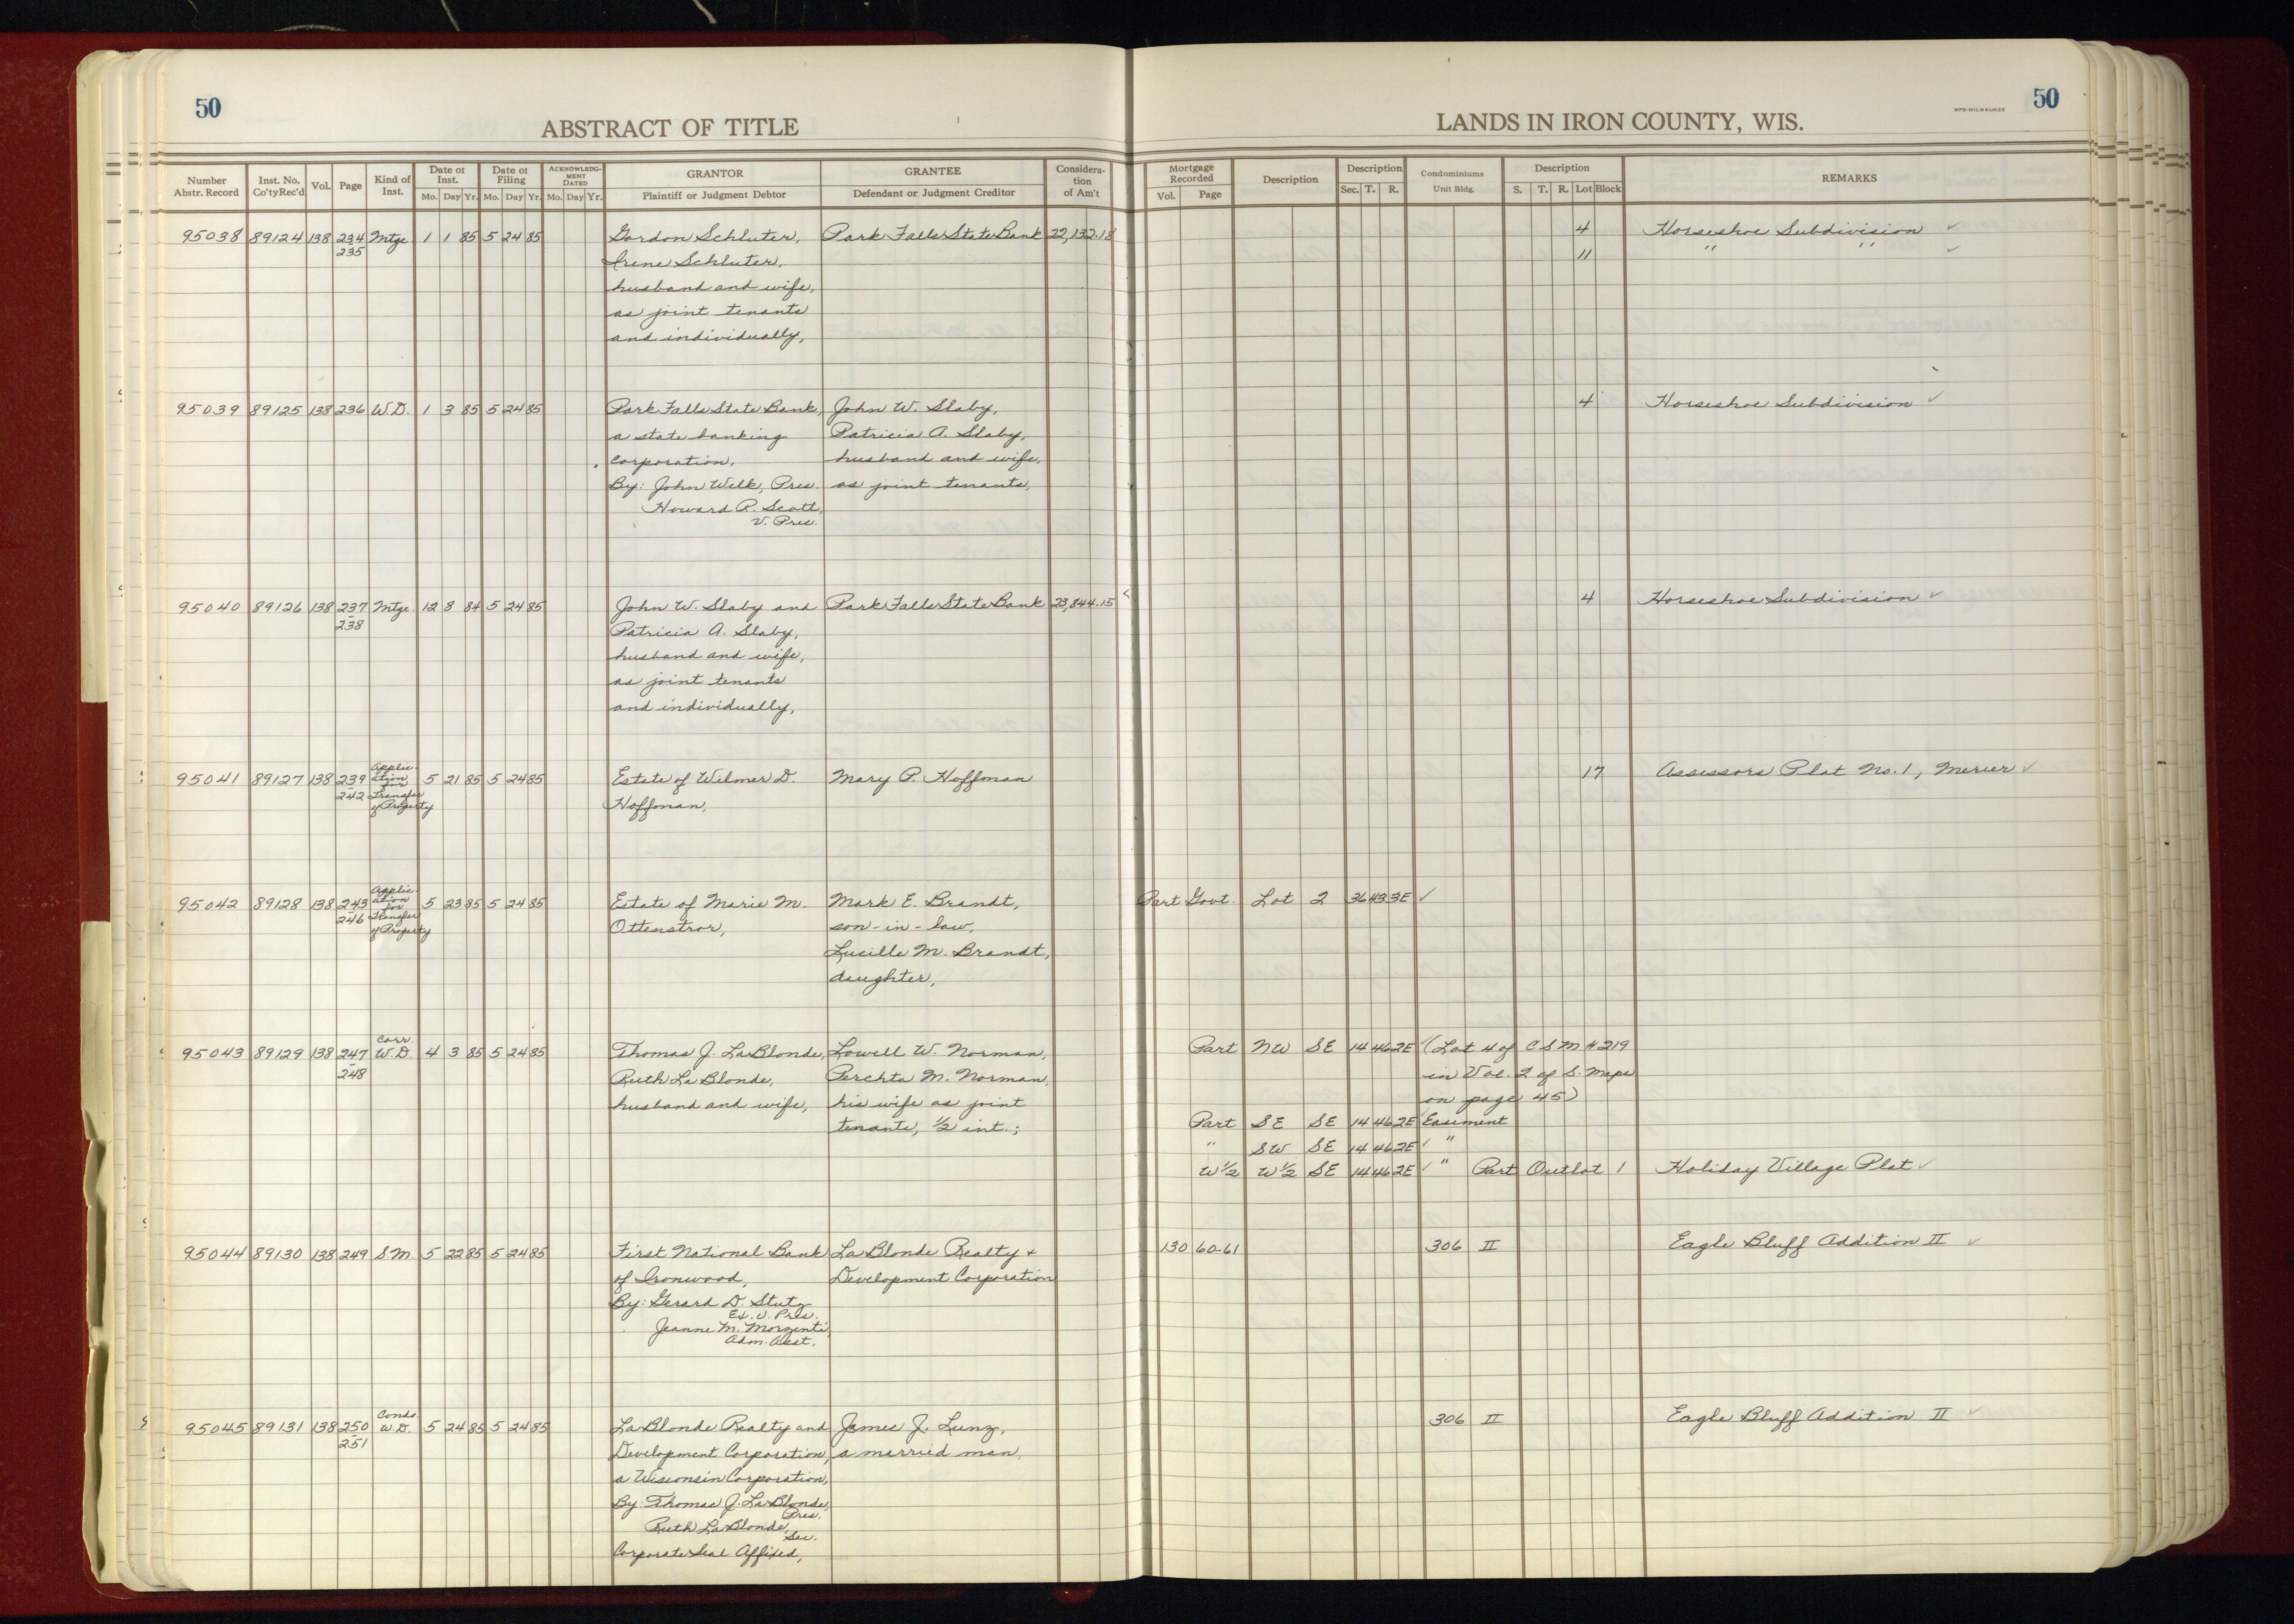 50
ABSTRACT OF TITLE
LANDS IN IRON COUNTY, WIS.
WPB-MILWAUKEE
50
Number Abstr. Record
Inst. No. Co'ty Rec'd
Vol.
Page
Kind of Inst.
Date of Inst. Mo. Day Yr.
Date of Filing Mo. Day Yr.
ACKNOWLEDG-MENT DATED Mo. Day Yr.
GRANTOR Plaintiff or Judgment Debtor
GRANTEE Defendant or Judgment Creditor
Considera-tion of Am't
Mortgage Recorded Vol. Page
Description
Description Sec. T. R.
Condominiums Unit Bldg.
Description S. T. R. Lot Block
REMARKS
95038 89124 138 234 Mtge 1 1 85 5 24 85 Gordon Schluter, Park Falls State Bank 22,132.18 4 Horseshoe Subdivision ✓
235 Irene Schluter, 11 " " ✓
husband and wife,
as joint tenants
and individually,
95039 89125 138 236 W.D. 1 3 85 5 24 85 Park Falls State Bank, John W. Slaby, 4 Horseshoe Subdivision ✓
a state banking Patricia A. Slaby,
corporation, husband and wife,
By: John Welk, Pres. as joint tenants,
Howard R. Scott,
V. Pres.
95040 89126 138 237 Mtge 12 8 84 5 24 85 John W. Slaby and Park Falls State Bank 23,844.15 4 Horseshoe Subdivision ✓
238 Patricia A. Slaby,
husband and wife,
as joint tenants
and individually,
95041 89127 138 239-242 Application for Transfer of Property 5 21 85 5 24 85 Estate of Wilmer D. Mary P. Hoffman 17 Assessors Plat No. 1, Mercer ✓
Hoffman,
95042 89128 138 243-246 Application for Transfer of Property 5 23 85 5 24 85 Estate of Marie M. Mark E. Brandt, Part Govt. Lot 2 36 43 3E ✓
Ottenstror, son-in-law,
Lucille M. Brandt,
daughter,
95043 89129 138 247-248 Corr. W.D. 4 3 85 5 24 85 Thomas J. LaBlonde, Lowell W. Norman, Part NW SE 14 46 2E ✓ (Lot 4 of CSM #219
Ruth LaBlonde, Perchta M. Norman, in Vol. 2 of S. Maps
husband and wife, his wife as joint on page 45)
tenants, 1/2 int.; Part SE SE 14 46 2E Easement
" SW SE 14 46 2E ✓ "
W½ W½ SE 14 46 2E ✓ " Part Outlot 1 Holiday Village Plat ✓
95044 89130 138 249 S.M. 5 22 85 5 24 85 First National Bank LaBlonde Realty + 130 60-61 306 II Eagle Bluff Addition II ✓
of Ironwood, Development Corporation
By: Gerard D. Stutz
Ex. V. Pres.
Jeanne M. Morzenti,
Adm. Asst.
95045 89131 138 250-251 Condo W.D. 5 24 85 5 24 85 LaBlonde Realty and James J. Lunz, 306 II Eagle Bluff Addition II ✓
Development Corporation, a married man,
a Wisconsin Corporation,
By: Thomas J. LaBlonde,
Pres.
Ruth LaBlonde,
Sec.
Corporate Seal Affixed,